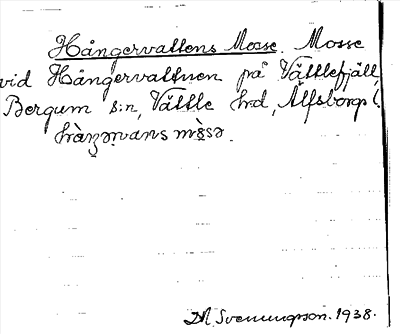 Hångervattens Mosse. Mosse
vid Hångervattnen på Vättlefjäll,
Bergum s:n, Vättle hrd, Älfsborgs l.
Svenungson. 1938.